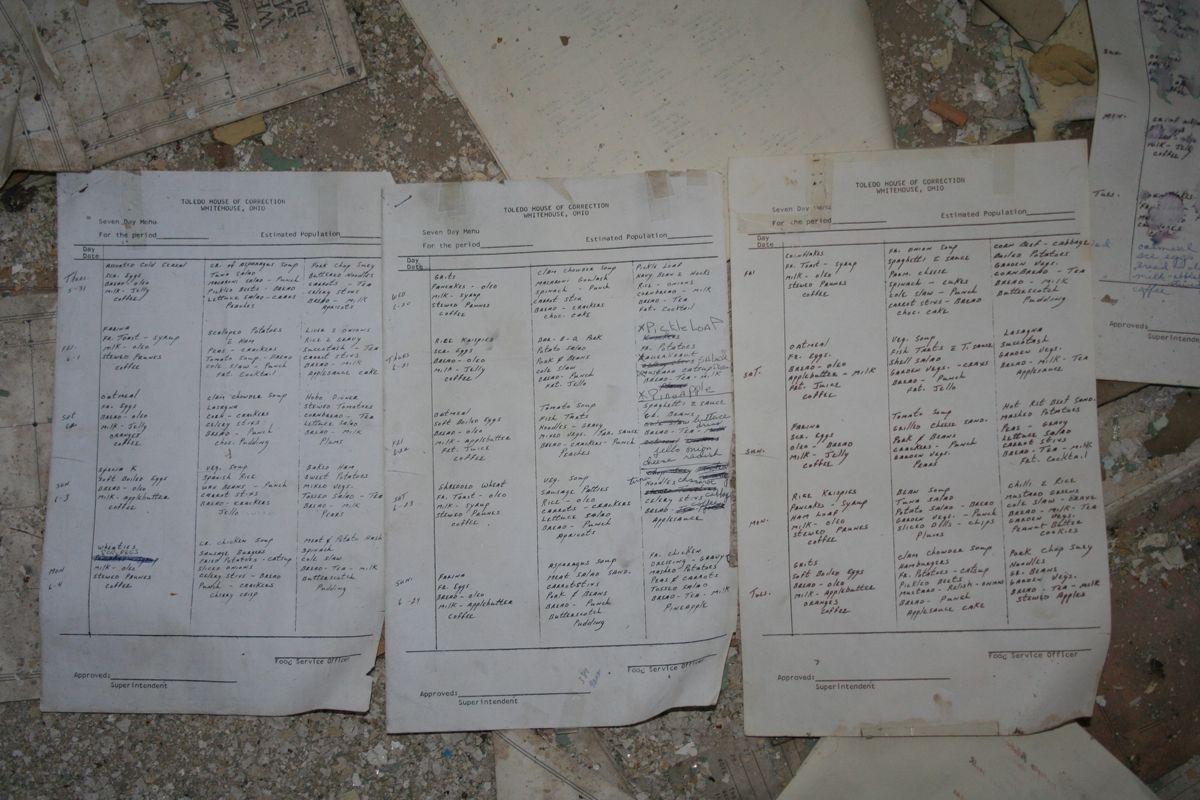 TOLEDO HOUSE OF CORRECTION
WHITEHOUSE, OHIO
Seven Day Menu
For the period Estimated Population
Day
Date
Thurs
5-31
Assorted Cold Cereal
Scr. Eggs
Bread - oleo
Milk - Jelly
Coffee
Cr. of Asparagus Soup
Tuna Salad
Macaroni Salad - Punch
Pickled Beets - Bread
Lettuce Salad - Crax
Peaches
Pork Chop Suey
Buttered Noodles
Carrots - Tea
Celery Stixs
Bread - Milk
Apricots
Fri
6-1
Farina
Fr. Toast - Syrup
Milk - oleo
Stewed Prunes
Coffee
Scalloped Potatoes
& Ham
Peas - Crackers
Tomato Soup - Bread
Cole Slaw - Punch
Frt. Cocktail
Liver & Onions
Rice & Gravy
Succotash - Tea
Carrot Stixs
Bread - Milk
Applesauce Cake
Sat
Oatmeal
Fr. Eggs
Bread - oleo
Milk - Jelly
Oranges
Coffee
Clam Chowder Soup
Lasagna
Corn - Crackers
Celery Stixs
Bread - Punch
Choc. Pudding
Hobo Dinner
Stewed Tomatoes
Cornbread - Tea
Lettuce Salad
Bread - Milk
Plums
Sun
6-3
Special K
Soft Boiled Eggs
Bread - oleo
Milk - Applebutter
Coffee
Veg. Soup
Spanish Rice
Wax Beans - Punch
Carrot Stixs
Bread - Crackers
Jello
Baked Ham
Sweet Potatoes
Mixed Vegs.
Tossed Salad - Tea
Bread - Milk
Pears
Mon
6-4
Wheaties
Milk - oleo
Stewed Prunes
Coffee
Cr. Chicken Soup
Sausage Burgers
Fried Potatoes - Catsup
Sliced Onions
Celery Stixs - Bread
Punch - Crackers
Cherry Crisp
Meat & Potato Hash
Spinach
Cole Slaw
Bread - Tea - Milk
Butterscotch
Pudding
Food Service Officer
Approved:
Superintendent
TOLEDO HOUSE OF CORRECTION
WHITEHOUSE, OHIO
Seven Day Menu
For the period Estimated Population
Day
Date
Grits
Pancakes - oleo
Milk - Syrup
Stewed Prunes
Coffee
Clam Chowder Soup
Macaroni Goulash
Spinach - Punch
Carrot Stix
Bread - Crackers
Choc. Cake
Pickle Loaf
Navy Bean & Hocks
Rice - Onions
Cornbread - Milk
Bread - Tea
Frt. Cocktail
Thurs
6-21
Rice Krispies
Scr. Eggs
Bread - oleo
Milk - Jelly
Coffee
Bar-B-Q Pork
Potato Salad
Pork & Beans
Cole Slaw
Bread - Punch
Frt. Jello
X Pickle Loaf
Fr. Potatoes
Bread - Tea - Milk
X Pineapple
Fri
Oatmeal
Soft Boiled Eggs
Bread - oleo
Milk - Applebutter
Frt. Juice
Coffee
Tomato Soup
Fish
Noodles - Gravy
Mixed Vegs.
Bread - Crackers - Punch
Peaches
Spaghetti & Sauce
Bread - Tea
Jello onion
cheese radish
Sat
6-23
Shredded Wheat
Fr. Toast - oleo
Milk - Syrup
Stewed Prunes
Coffee
Veg. Soup
Sausage Patties
Rice - oleo
Carrots - Crackers
Lettuce Salad
Bread - Punch
Apricots
Noodles
Celery Stixs
Bread
Applesauce
Sun.
6-24
Farina
Fr. Eggs
Bread - oleo
Milk - Applebutter
Coffee
Asparagus Soup
Meat Salad Sand.
Carrot Stixs
Pork & Beans
Bread - Punch
Butterscotch
Pudding
Fr. Chicken
Dressing - Gravy
Mashed Potatoes
Peas & Carrots
Tossed Salad
Bread - Tea - Milk
Pineapple
Food Service Officer
Approved:
Superintendent
TOLEDO HOUSE OF CORRECTION
WHITEHOUSE, OHIO
Seven Day Menu
For the period Estimated Population
Day
Date
Fri
Cornflakes
Fr. Toast - Syrup
Milk - oleo
Stewed Prunes
Coffee
Fr. Onion Soup
Spaghetti & Sauce
Parm. Cheese
Spinach - Crackers
Cole Slaw - Punch
Carrot Stixs - Bread
Choc. Cake
Corn Beef - Cabbage
Boiled Potatoes
Garden Vegs.
Cornbread - Tea
Bread - Milk
Butterscotch
Pudding
Sat.
Oatmeal
Fr. Eggs
Bread - oleo
Applebutter - Milk
Frt. Juice
Coffee
Veg. Soup
Fish & T. Sauce
Shell Salad
Garden Vegs. - Crax
Bread - Punch
Frt. Jello
Lasagna
Succotash
Garden Vegs.
Bread - Milk - Tea
Applesauce
Sun.
Farina
Scr. Eggs
oleo - Bread
Milk - Jelly
Coffee
Tomato Soup
Grilled Cheese Sand.
Pork & Beans
Bread - Crackers
Garden Vegs.
Pears
Hot Rst Beef Sand.
Mashed Potatoes
Peas - Gravy
Lettuce Salad
Carrot Stixs
Bread - Milk - Tea
Frt. Cocktail
Mon.
Rice Krispies
Pancakes - Syrup
Ham Loaf
Milk - oleo
Stewed Prunes
Coffee
Bean Soup
Tuna Salad
Potato Salad - Bread
Garden Vegs. - Punch
Sliced Dills - Chips
Plums
Chili & Rice
Mustard Greens
Cole Slaw - Crax
Bread - Milk - Tea
Garden Vegs.
Peanut Butter
Cookies
Tues.
Grits
Soft Boiled Eggs
Bread - oleo
Milk - Applebutter
Oranges
Coffee
Clam Chowder Soup
Hamburgers
Fr. Potatoes - Catsup
Pickled Beets
Mustard - Relish - Onions
Bread - Punch
Applesauce Cake
Pork Chop Suey
Noodles
Gr. Beans
Garden Vegs.
Bread - Tea - Milk
Stewed Apples
Food Service Officer
Approved:
Superintendent
Sun.
Mon.
Milk - Jelly
Coffee
Tues.
oatmeal
scr eggs
coffee
Approved: